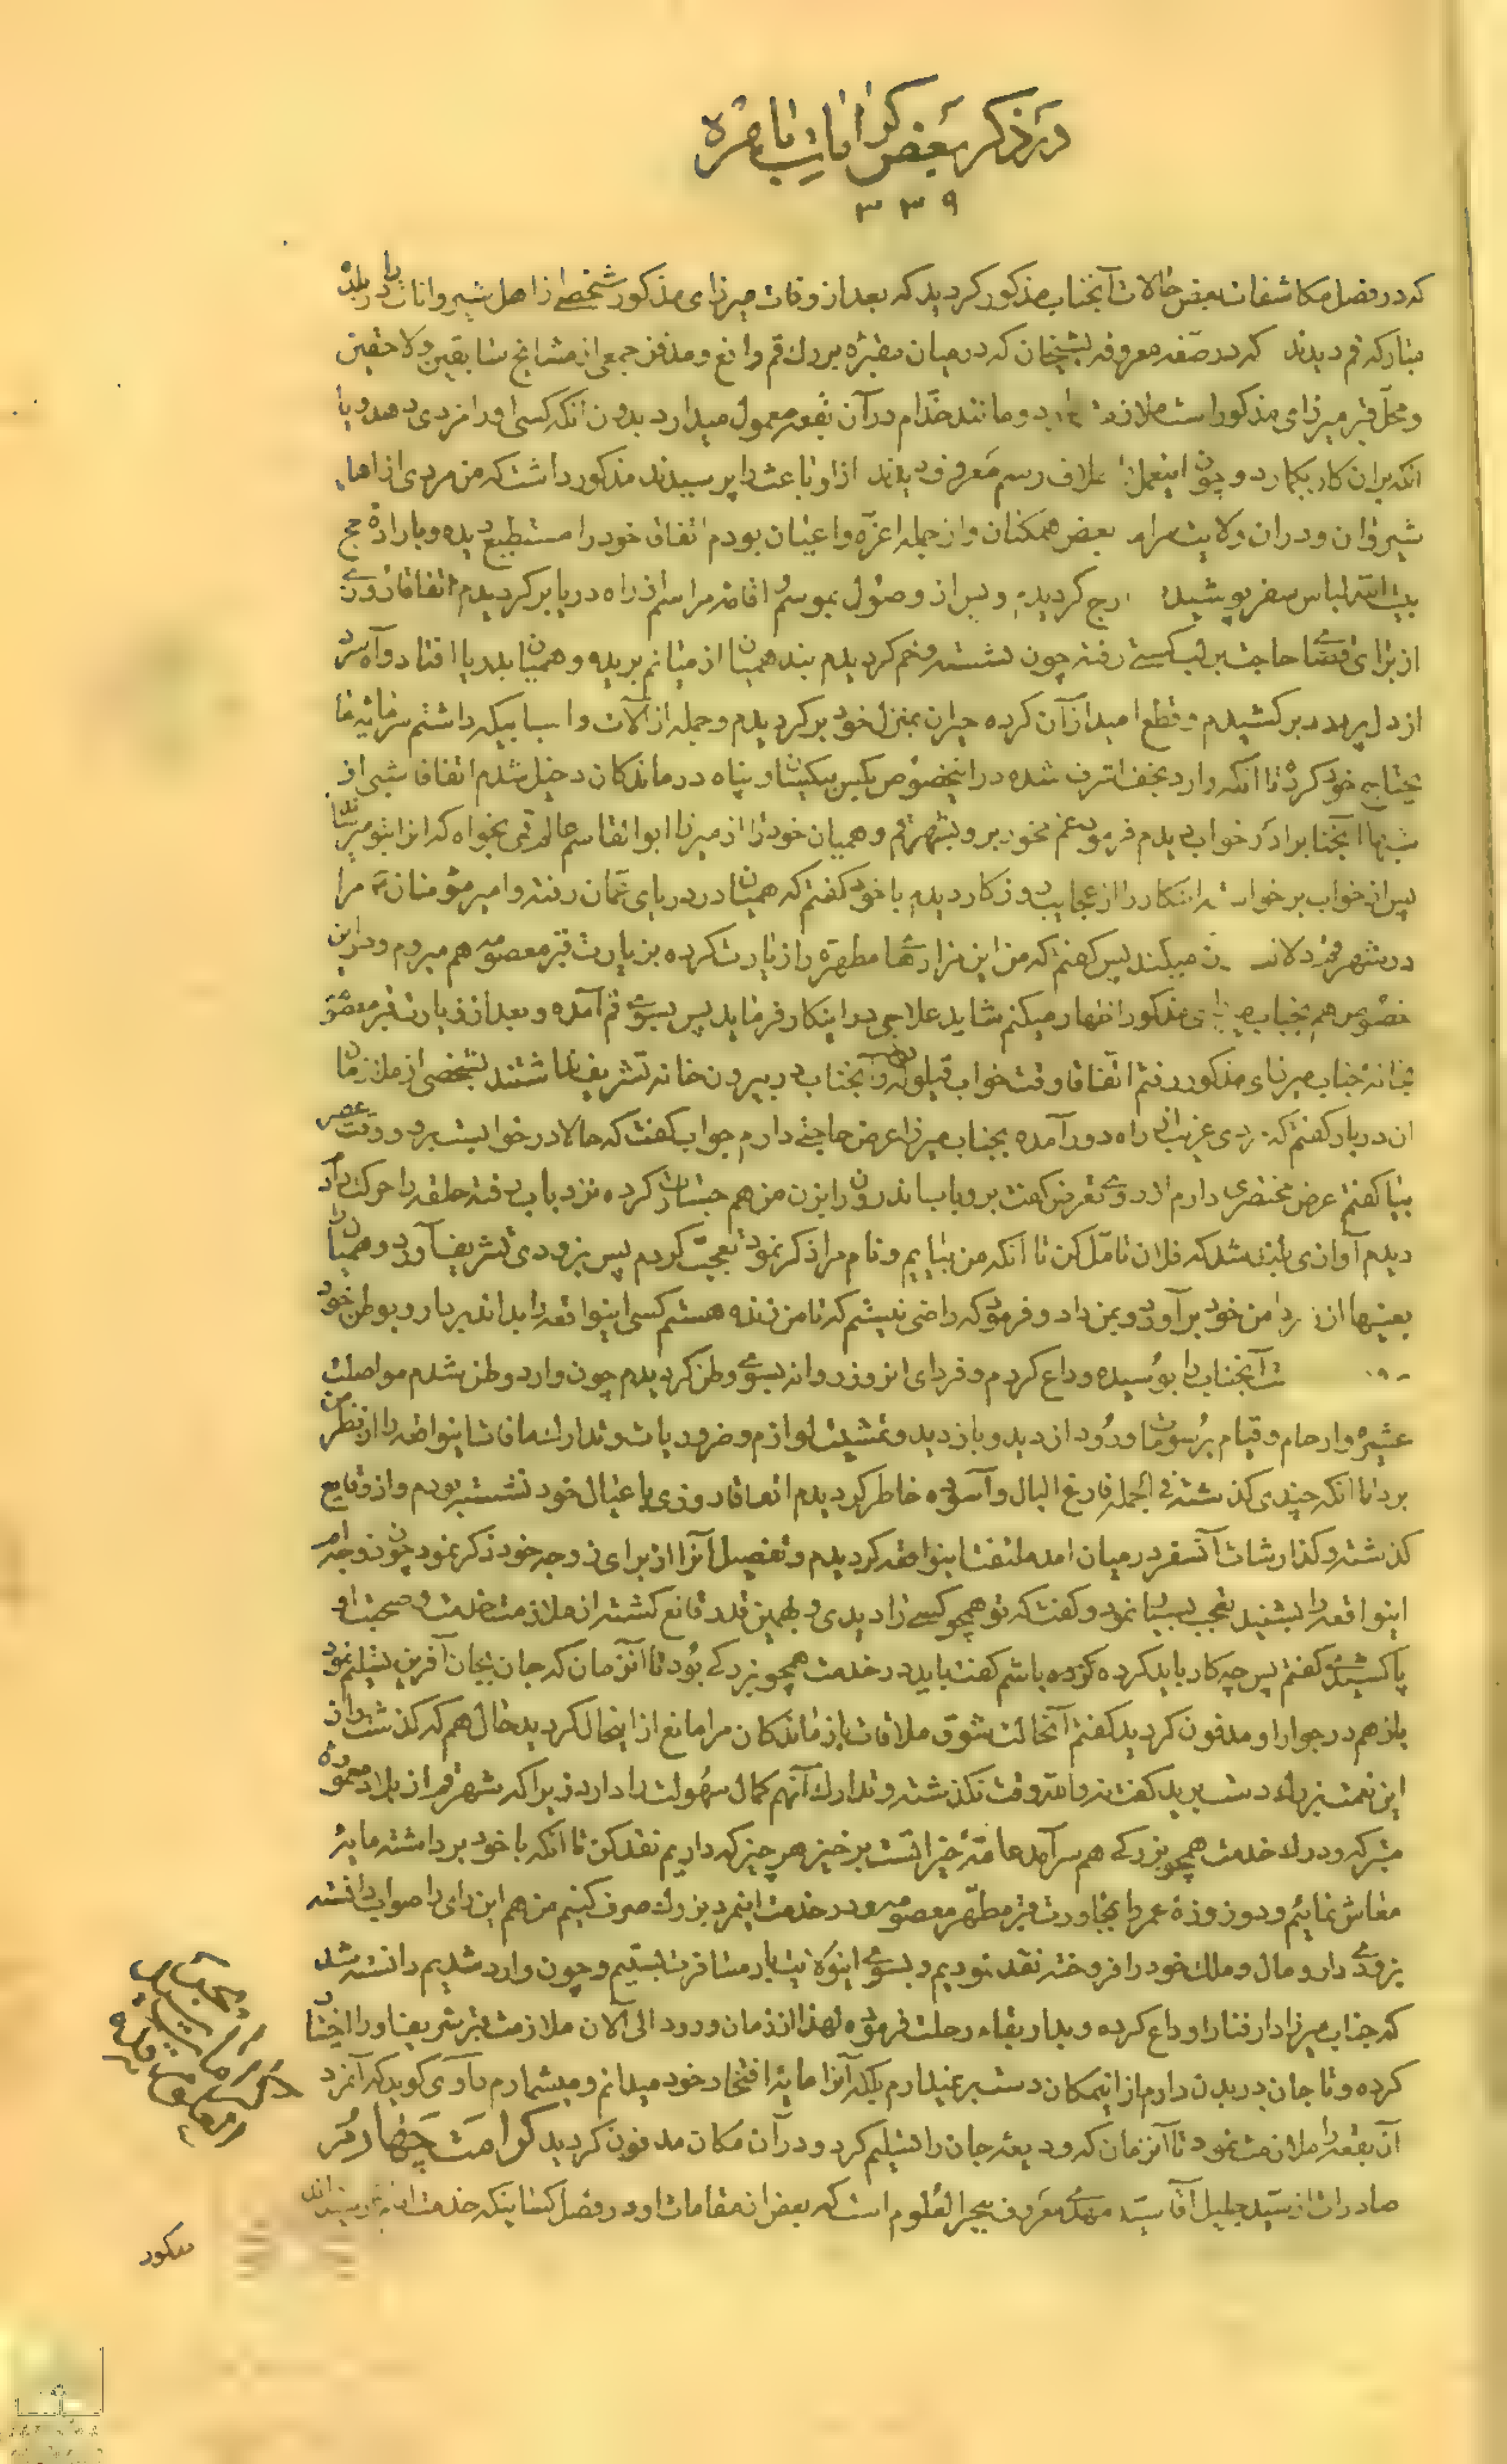 در ذکر بعض کرامات باهره
۳۳۹
که در فصل مکاشفات بعض حالات آنجناب مذکور گردید که بعد از وفات میرزای مذکور شخصی از اهل شیروانات را در بلده
مبارکه قم دیدند که در صفه معروفه بشیخان که در میان مقبره بزرك قم واقع و مدفن جمعی از مشایخ سابقین و لاحقین
و محل قبر میرزای مذکور است ملازمت دارد و مانند خدام در آن بقعه معمول میدارد بدون آنکه کسی او را مزدی دهد و یا
آنکه بر آن کار بگمارد و چون اینعمل خلاف رسم معروف دیدند از او باعث را پرسیدند مذکور داشت که من مردی از اهل
شیروان و در آن ولایت مرا بعض همکنان و از جمله اعزه و اعیان بودم اتفاق خود را مستطیع دیده و باراده حج
بیت الله لباس سفر پوشیده گردیدم و پس از وصول بموسم و اقامه مراسم از راه دریا برگردیدم اتفاقا روزی
از برای قضا حاجت بر لب کشتی رفته چون نشسته و خم گردیدم بند همیان از میانم بریده و همیان بدریا افتاد و آه سرد
از دل پر درد برکشیدم و قطع امید از آن کرده حیران بمنزل خود برگردیدم و جمله از آلات و اسبابیکه داشتم سرمایه ما
یحتاج خود کرده تا آنکه وارد نجف اشرف شده در اینخصوص بکس بیکسان و پناه درماندکان دخیل شدم اتفاق شبی از
شبها آنجناب را در خواب دیدم فرمود غم مخور برو بشهر قم و همیان خود را از میرزا ابوالقاسم عالم قمی بخواه که آنرا بتو میرساند
پس از خواب برخواسته اینکار را از عجایب روزکار دیدم با خود گفتم که همیان در دریای عمان رفته و امیر مؤمنان ع مرا
در شهر قم دلالت میکند پس گفتم که من این مزارهای مطهره را زیارت کرده بزیارت قبر معصومه هم میروم و در این
خصوص هم بجناب میرزای مذکور اظهار میکنم شاید علاجی در اینکار فرماید پس بسوی قم آمده و بعد از زیارت قبر معصومه
بخانه جناب میرزای مذکور رفتم اتفاقا وقت خواب قیلوله بود و آنجناب در بیرون خانه تشریف نداشتند بشخصی از ملازمان
آن دربار گفتم که مردی غریبم از راه دور آمده بجناب میرزا عرض حاجتی دارم جواب گفت که حالا در خوابست برو و وقت عصر
بیا گفتم عرض مختصری دارم از روی تعرض گفت برو باب اندرون را بزن من هم جسارت کرده نزد باب رفته حلقه را حرکت دادم
دیدم آوازی بلند شد که فلان تأمل کن تا آنکه من بیایم و نام مرا ذکر نمود تعجب کردم پس بزودی تشریف آورد و همیان را
بعینها از زیر دامن خود برآورد و بمن داد و فرمود که راضی نیستم که تا من زنده هستم کسی اینواقعه را بداند بردار و بوطن خود
آنجناب را بوسیده وداع کردم و فردای آنروز روانه بسوی وطن گردیدم چون وارد وطن شدم مواصلت
عشیره و ارحام و قیام برسومات ورود از دید و بازدید و تمشیت لوازم و ضروریات و تدارك مافات اینواقعه را از نظر من
برد تا آنکه چندی گذشته فی الجمله فارغ البال و آسوده خاطر گردیدم اتفاقا روزی با عیال خود نشسته بودم و از وقایع
گذشته و گذارشات آنسفر در میان آمد ملتفت اینواقعه گردیدم و تفصیل آنرا از برای زوجه خود ذکر نمودم چون زوجه‌ام
اینواقعه را بشنید تعجب بسیار نمود و گفت که تو همچو کسی را دیدی و بهمین قدر قانع گشته از ملازمت خدمت و صحبت او
پا کشیدی گفتم پس چه کار باید کرده باشم گفت باید در خدمت همچو بزرگی بود تا آنزمان که جان بجان آفرین تسلیم نمود
باز هم در جوار او مدفون گردید گفتم آنحالت شوق ملاقات بازماندگان مرا مانع از اینحال گردید حال هم که گذشت و از
این نعمت بزرك دست برید گفت نه والله وقت نگذشته و تدارك آنهم کمال سهولت را دارد زیرا که شهر قم از بلاد معموره
متبرکه و درك خدمت همچو بزرگی هم سرآمد همه خیراتست برخیز هر چیز که داریم نقد کن تا آنکه با خود برداشته مایه
معاش نمائیم و دو روزه عمر را بمجاورت قبر مطهر معصومه و در خدمت اینمرد بزرك صرف کنیم من هم این رای را صواب دانسته
بزودی دار و مال و ملك خود را فروخته نقد نمودیم و بسوی اینکوه نیت بار مسافرت بستیم و چون وارد شدیم دانسته شد
که جناب میرزا دار فنا را وداع کرده و بدار بقاء رحلت فرموده لهذا از زمان ورود الی الآن ملازمت قبر شریف او را اختیار
کرده و تا جان در بدن دارم از اینمکان دست برنمیدارم بلکه آنرا مایه افتخار خود میدانم و میشمارم راوی گوید که آنمرد
آن بقعه را ملازمت نمود تا آنزمان که ودیعه جان را تسلیم کرد و در آن مکان مدفون گردید کرامت چهارم
صادرات از سید جلیل آقا سید مهدی معروف ببحر العلوم است که بعض از مقامات او در فصل کسانیکه خدمت رسیده‌اند
مذکور